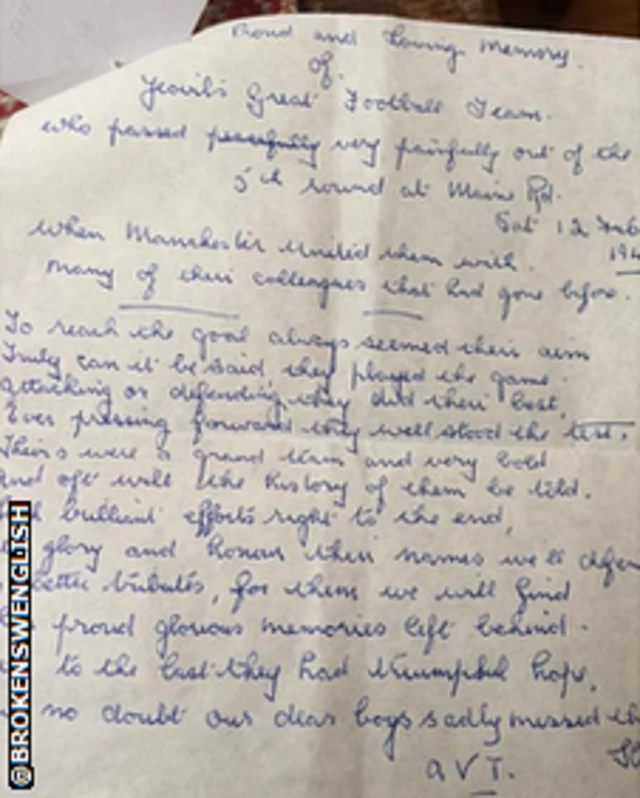 Proud and Loving Memory.
of.
Yeovil's Great Football Team.
who passed peacefully very painfully out of the
5th round at Maine Rd.
Sat 12 Feb
194
when Manchester United them with
many of their colleagues that had gone before.
To reach the goal always seemed their aim
Truly can it be said they played the game.
attacking or defending they did their best,
Ever pressing forward they well stood the test.
Theirs were a grand team and very bold
and oft will the history of them be told.
brilliant efforts right to the end,
glory and honour their names we'll defen
better tributes, for them we will find
proud glorious memories left behind.
to the last they had triumphal hope,
no doubt our dear boys sadly missed th
a V T.
@BROKENSWENGLISH